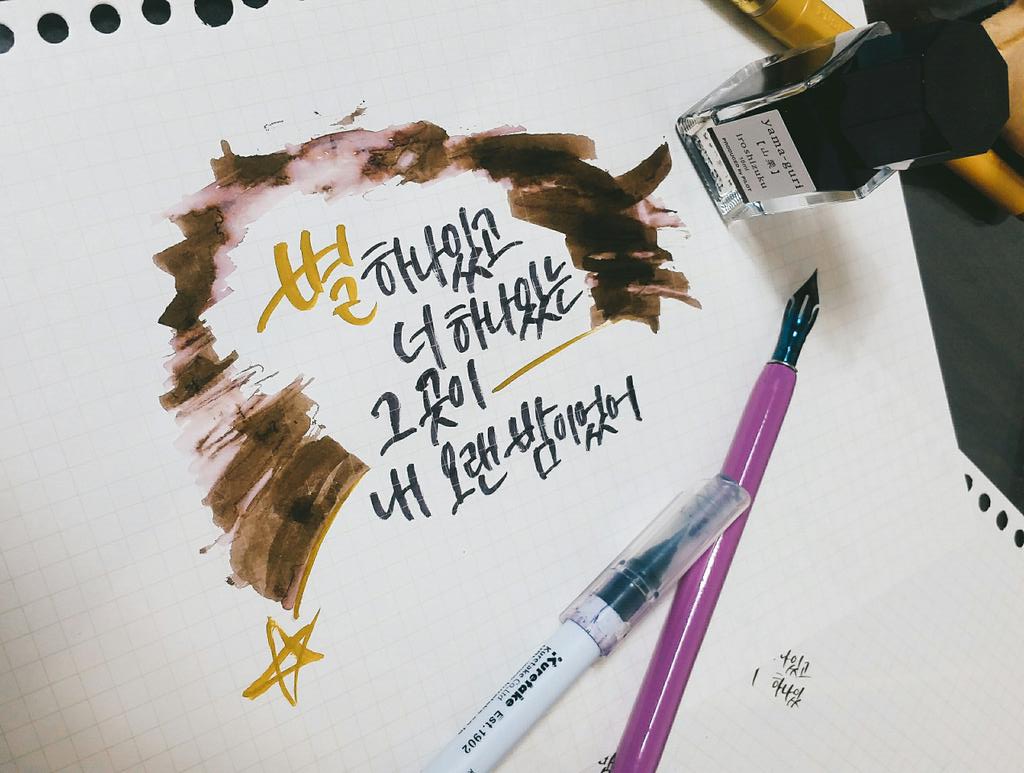 별 하나 있고
너 하나 있는
그 곳이
내 오랜 밤이었어
yama-guri
[山栗]
iroshizuku
15ml
PRODUCED by PILOT
kuretake Est.1902
Kuretake Co.,Ltd.
나있고
하나있